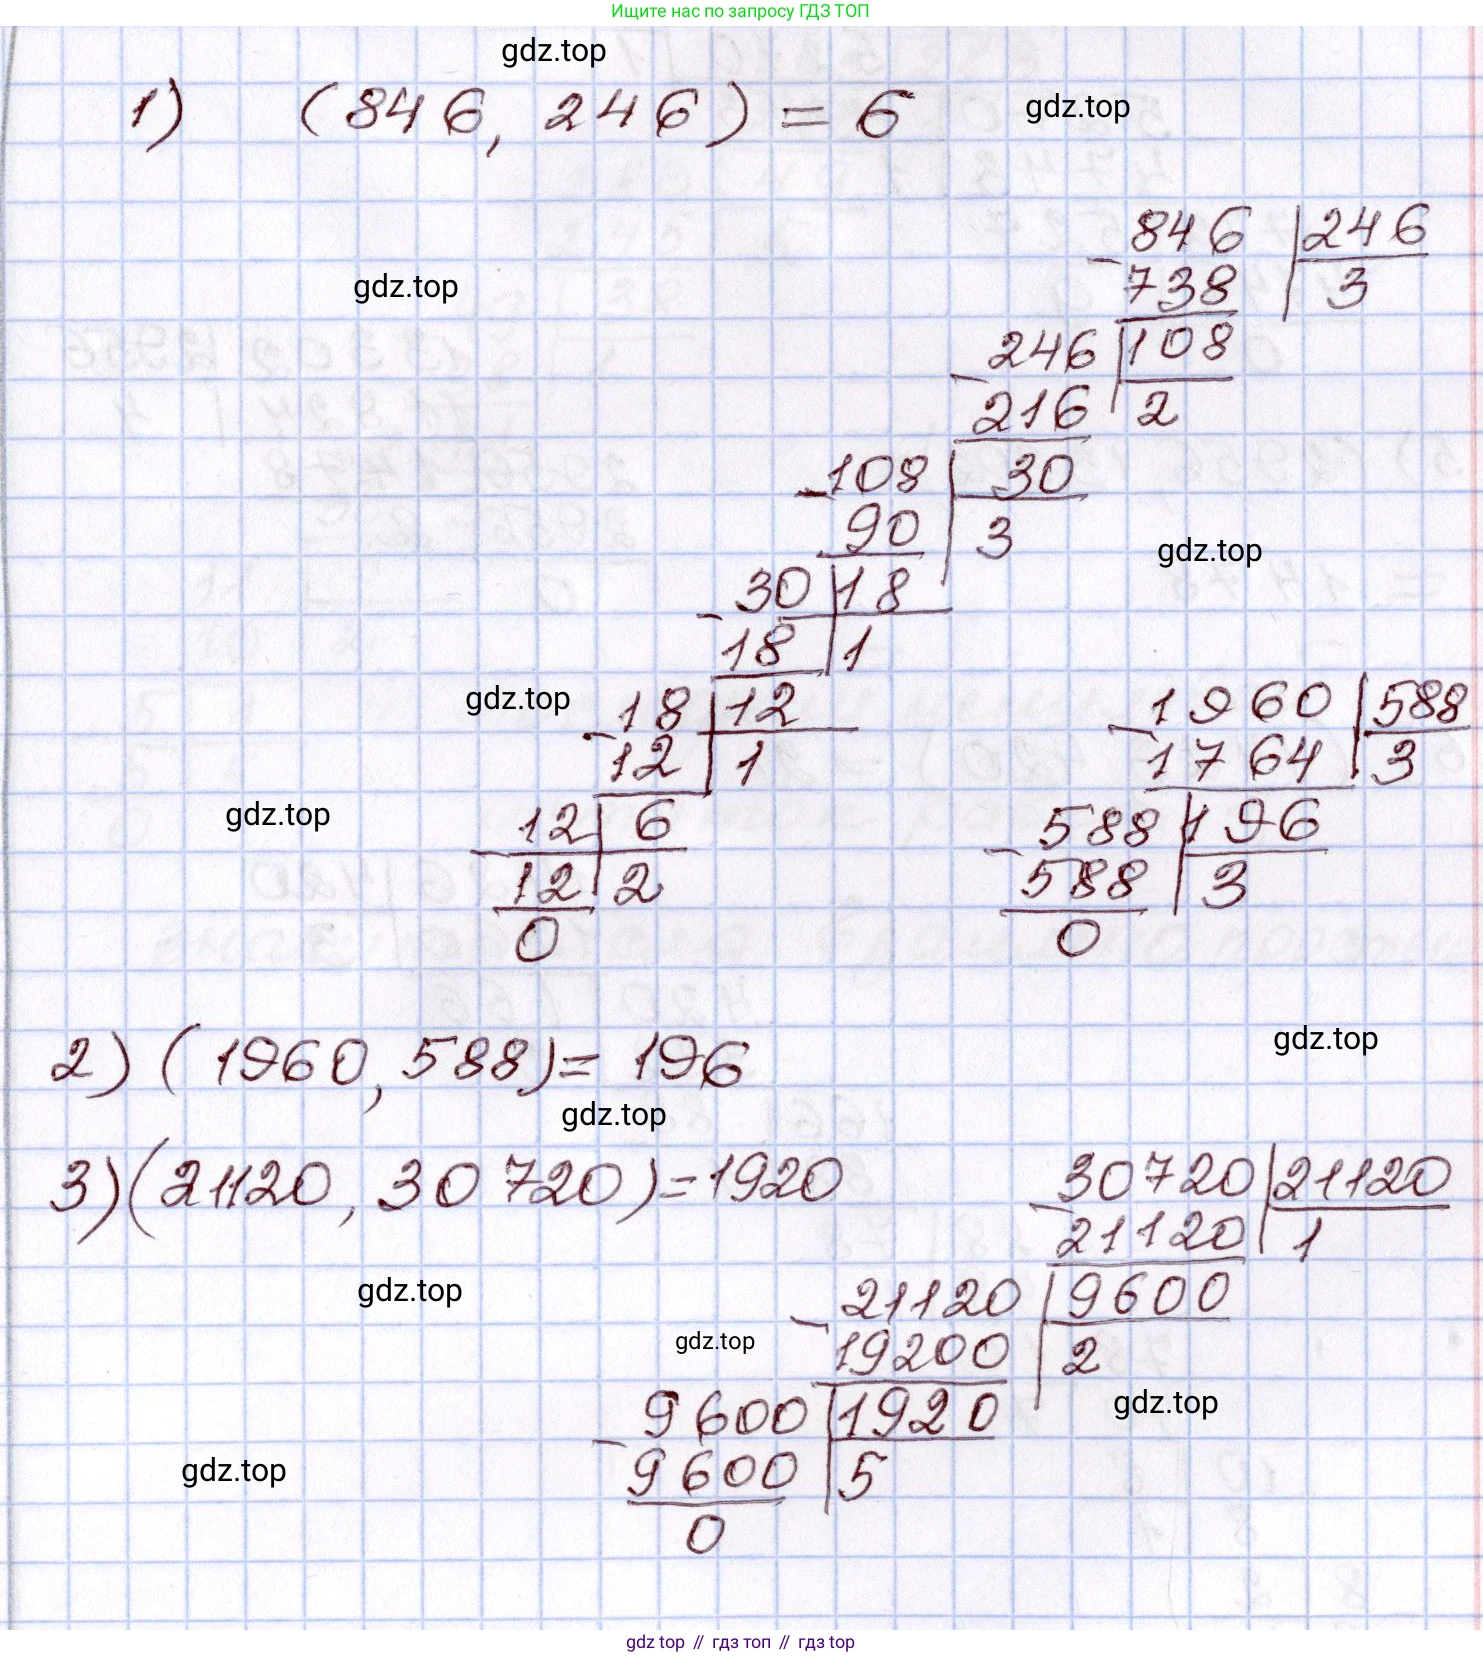 Ищите нас по запросу ГДЗ ТОП
gdz.top
1) (846, 246) = 6
gdz.top
846 | 246
- 738 | 3
gdz.top
246 | 108
- 216 | 2
108 | 30
- 90 | 3
gdz.top
30 | 18
- 18 | 1
gdz.top
18 | 12
- 12 | 1
gdz.top
12 | 6
- 12 | 2
0
1960 | 588
- 1764 | 3
588 | 196
- 588 | 3
0
gdz.top
2) (1960, 588) = 196
gdz.top
3) (21120, 30720) = 1920
30720 | 21120
- 21120 | 1
gdz.top
21120 | 9600
- 19200 | 2
gdz.top
gdz.top
9600 | 1920
- 9600 | 5
0
gdz.top
gdz top // гдз топ // gdz top